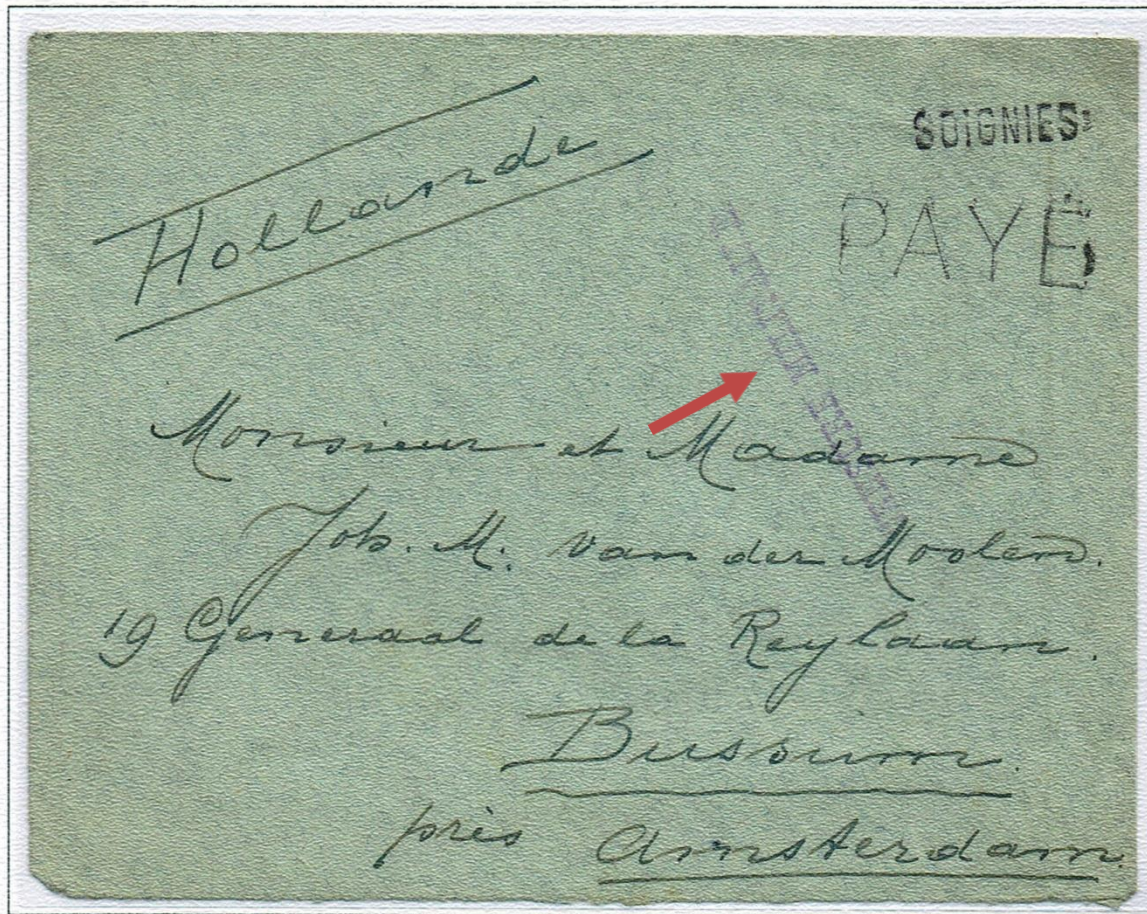 Hollande
SOIGNIES
PAYÉ
Monsieur et Madame
Job. M. van der Moolen.
19 Generaal de la Reylaan.
Bussum.
près Amsterdam.